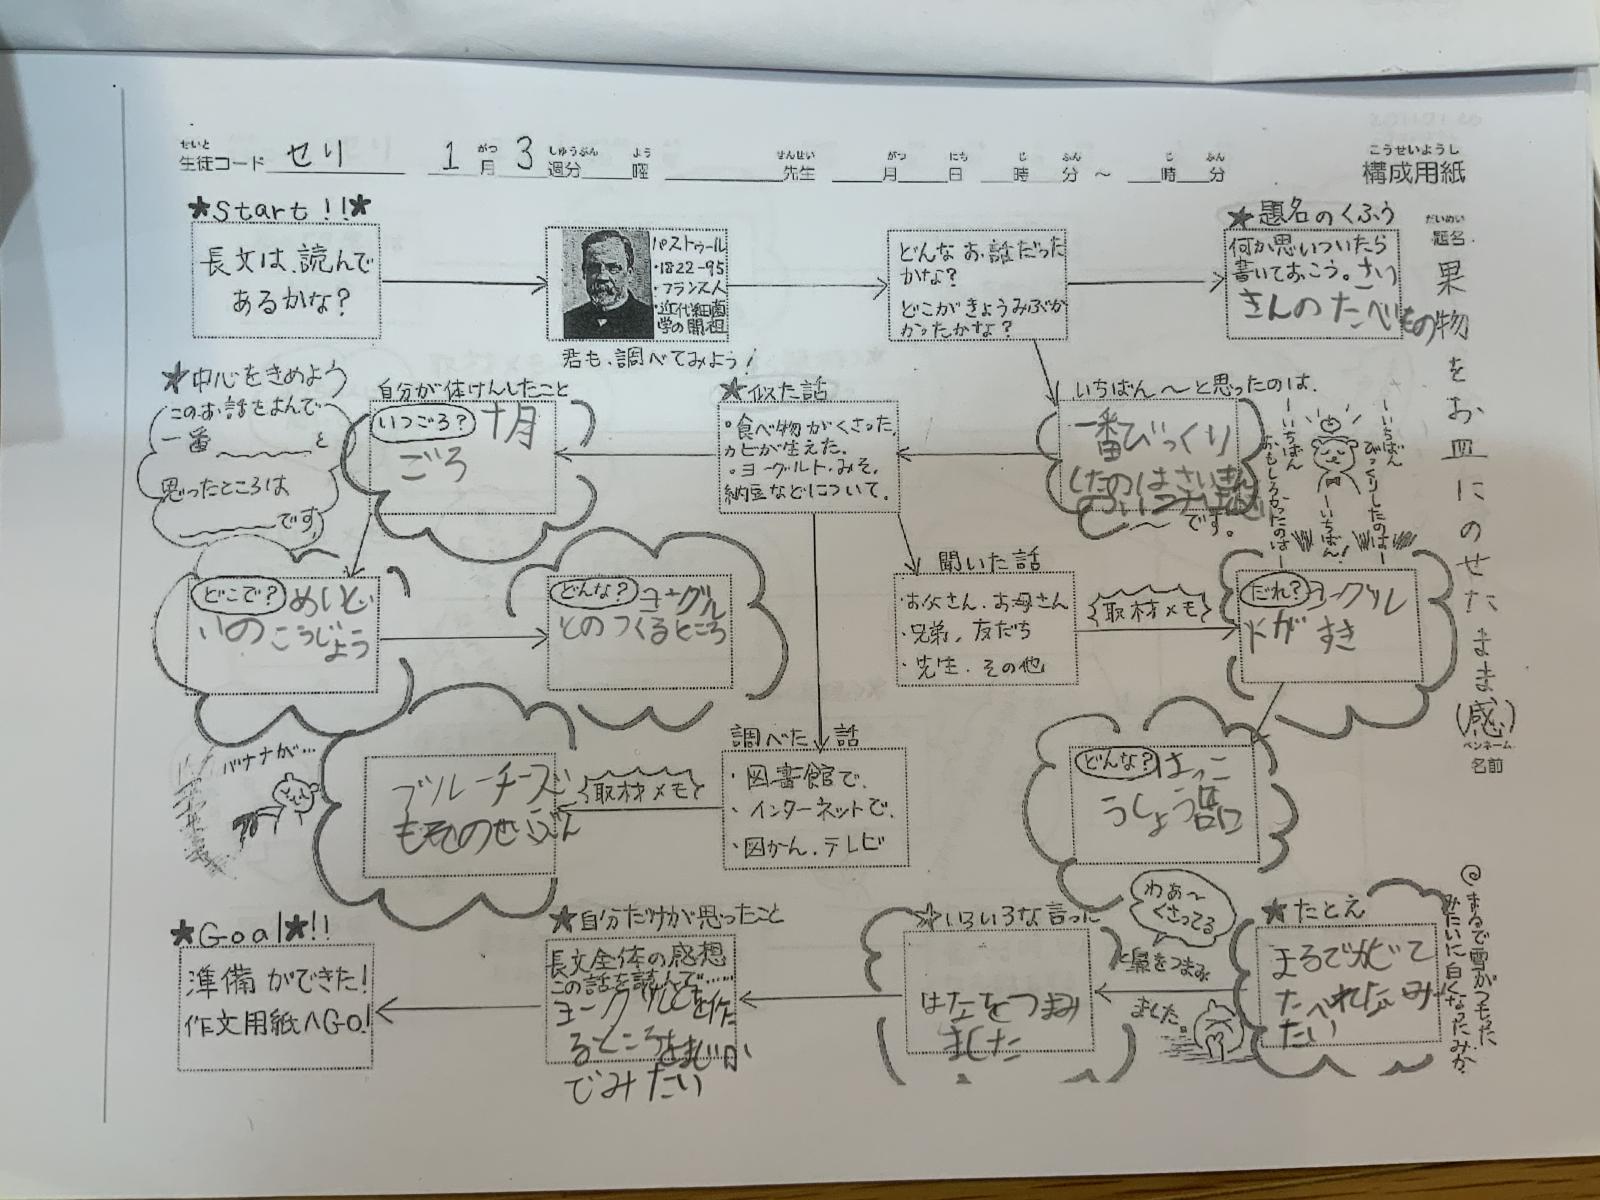 せいと がつ しゅうぶん よう せんせい がつ にち じ ふん じ ふん こうせいようし
生徒コード せり 1月 3週分 曜 先生 月 日 時 分 ～ 時 分 構成用紙
だいめい
題名
果物をお皿にのせたまま(感)
ペンネーム
名前
★Start!!★
長文は、読んで
あるかな?
パストゥール
・1822-95
・フランス人
・近代細菌
学の開祖
君も、調べてみよう!
どんな お話だった
かな?
どこがきょうみぶか
かったかな?
★題名のくふう
何か思いついたら
書いておこう。さい
きんの たべもの
★中心をきめよう
このお話をよんで
一番 と
思ったところは
です
自分が体けんしたこと
いつごろ? 十月
ごろ
★似た話
・食べ物がくさった、
カビが生えた。
・ヨーグルト・みそ、
納豆などについて。
いちばん 〜と思ったのは、
一番びっくり
したのはさいきん
〜です。
ーいちばん
びっくりしたのはー
ーいちばん!
ーいちばん
おもしろかったのはー
どこで? めいじ
いの こうじょう
どんな? ヨーグル
とのつくるところ
聞いた話
・お父さん、お母さん
・兄弟、友だち
・先生、その他
取材メモ
だれ? ヨーグル
トが すき
バナナが…
ブルーチーズ
もそのせいぶん
取材メモ
調べた話
・図書館で、
・インターネットで、
・図かん、テレビ
どんな? はっこ
うしょう品
★Goal★!!
準備ができた!
作文用紙へGo!
★自分だけが思ったこと
長文全体の感想
この話を読んで……
ヨーグルトを作
るところをまじか
でみたい
☆いろいろな言った
はなをつまみ
ました
わぁ〜
くさってる
と鼻をつまみ
ました。
★たとえ
まるでカビて
たべれない み
たい
◎まるで雪がつもった
みたいに白くなったみか